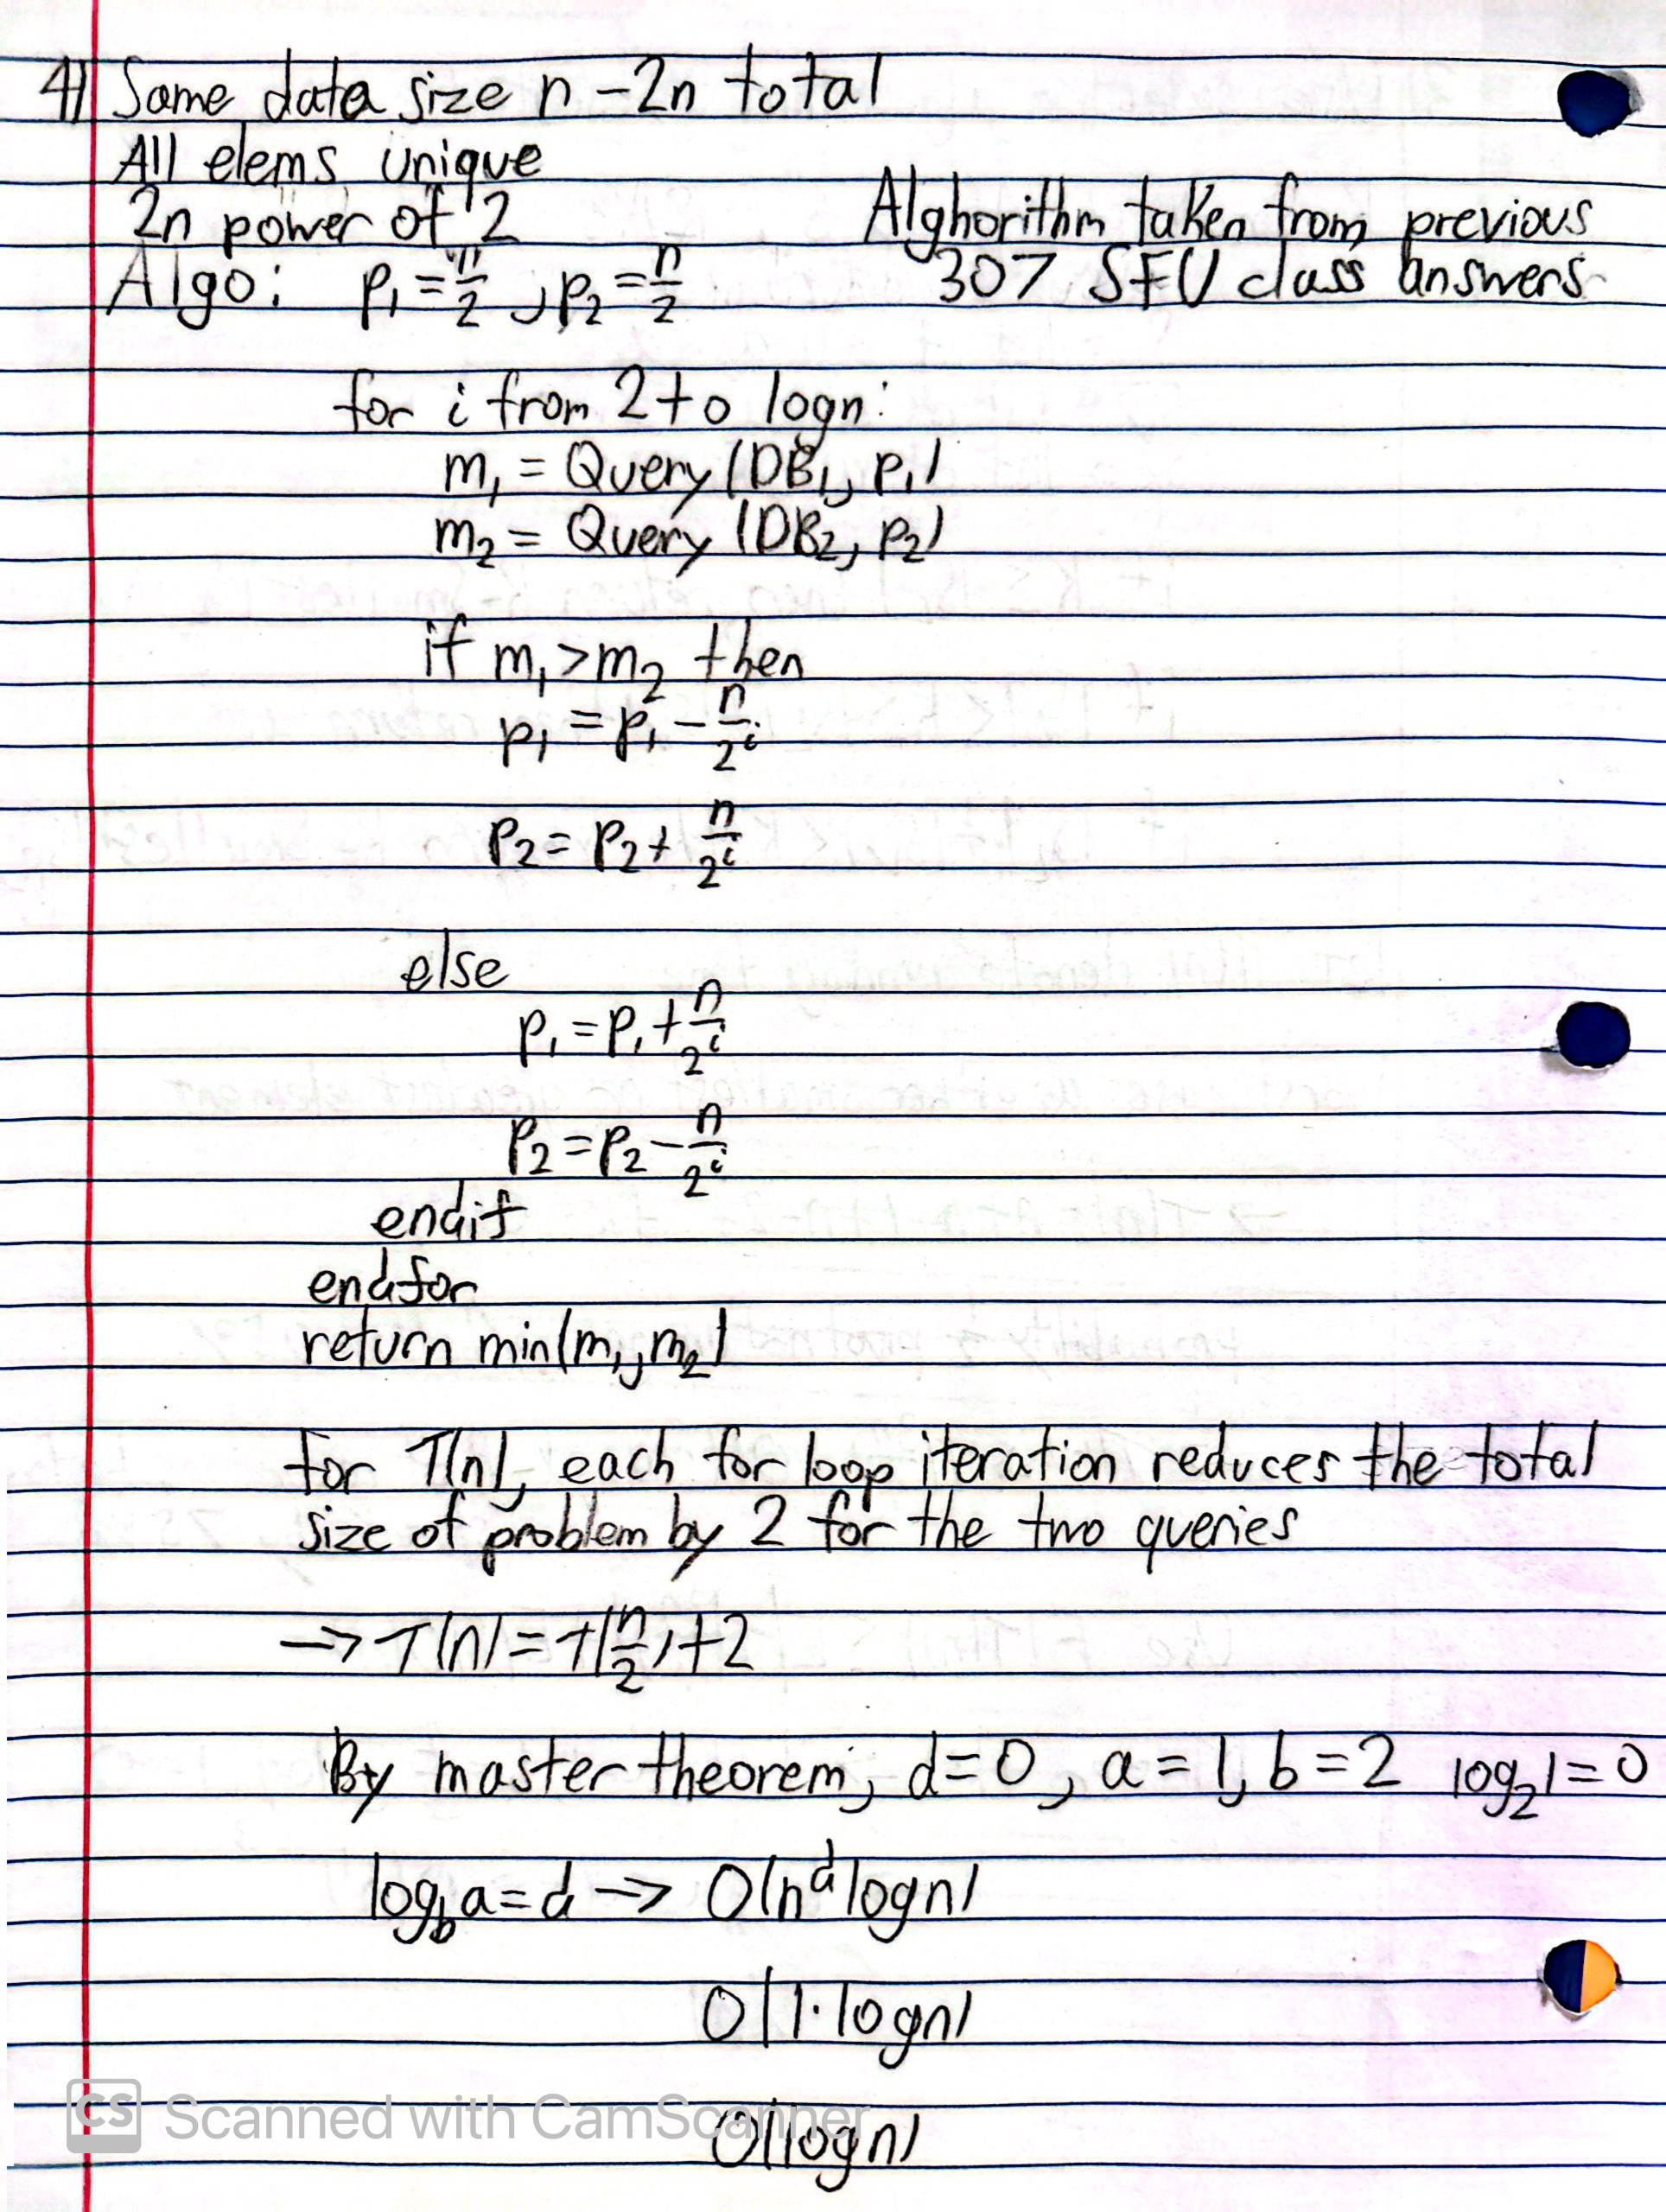 4) Same data size n - 2n total
All elems unique
2n power of 2
Alghorithm taken from previous
307 SFU class answers
Algo: p₁ = n/2, p₂ = n/2
for i from 2 to logn:
m₁ = Query (DB₁, p₁)
m₂ = Query (DB₂, p₂)
if m₁ > m₂ then
p₁ = p₁ - n/2ⁱ
p₂ = p₂ + n/2ⁱ
else
p₁ = p₁ + n/2ⁱ
p₂ = p₂ - n/2ⁱ
endif
endfor
return min(m₁, m₂)
for T(n), each for loop iteration reduces the total
size of problem by 2 for the two queries
→ T(n) = T(n/2) + 2
By master theorem, d=0, a=1, b=2 log₂1=0
log_b a = d → O(n^d logn)
O(1·logn)
O(logn)
CS Scanned with CamScanner